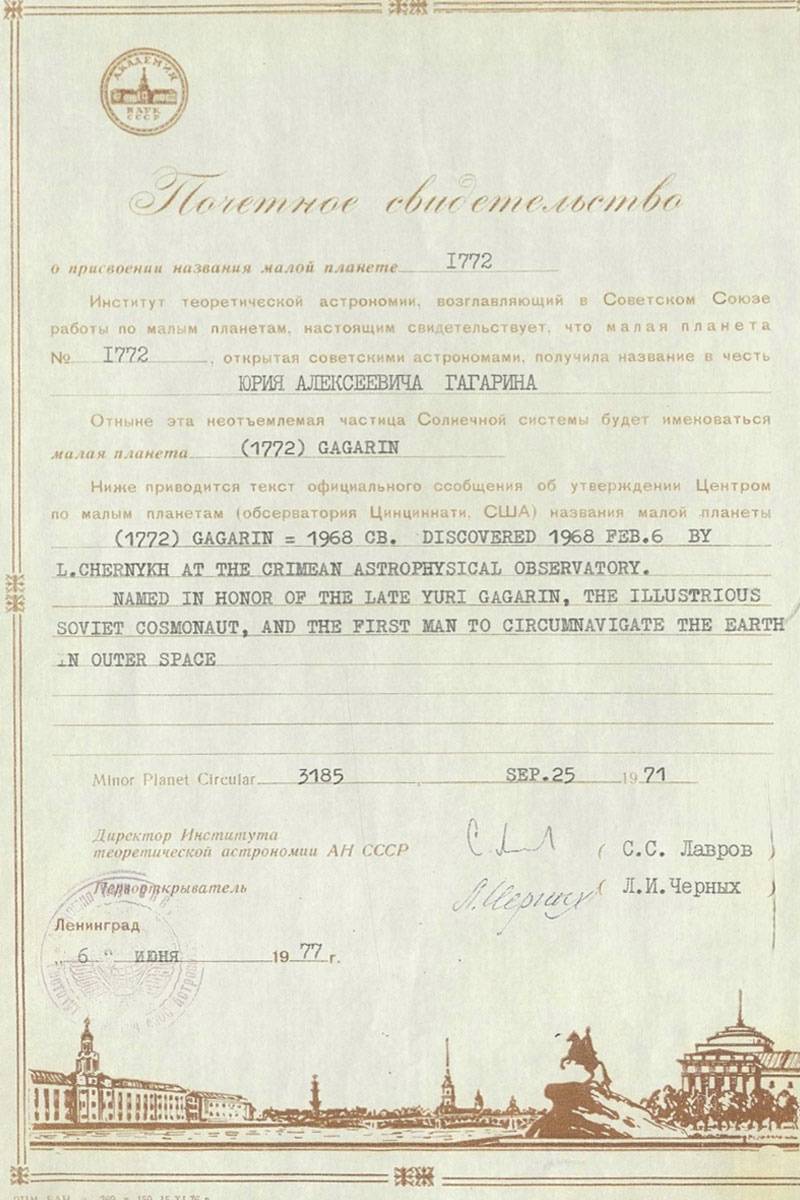 АКАДЕМИИ
НАУК
СССР
Почетное свидетельство
о присвоении названия малой планете 1772
Институт теоретической астрономии, возглавляющий в Советском Союзе
работы по малым планетам, настоящим свидетельствует, что малая планета
№ 1772, открытая советскими астрономами, получила название в честь
ЮРИЯ АЛЕКСЕЕВИЧА ГАГАРИНА
Отныне эта неотъемлемая частица Солнечной системы будет именоваться
малая планета (1772) GAGARIN
Ниже приводится текст официального ссобщения об утверждении Центром
по малым планетам (обсерватория Цинциннати, США) названия малой планеты
(1772) GAGARIN = 1968 CB. DISCOVERED 1968 FEB.6 BY
L.CHERNYKH AT THE CRIMEAN ASTROPHYSICAL OBSERVATORY.
NAMED IN HONOR OF THE LATE YURI GAGARIN, THE ILLUSTRIOUS
SOVIET COSMONAUT, AND THE FIRST MAN TO CIRCUMNAVIGATE THE EARTH
IN OUTER SPACE
Minor Planet Circular 3185, SEP.25 1971
Директор Института
теоретической астрономии АН СССР (С.С. Лавров)
Первооткрыватель Л.Черных (Л.И.Черных)
Ленинград
„6" июня 1977 г.